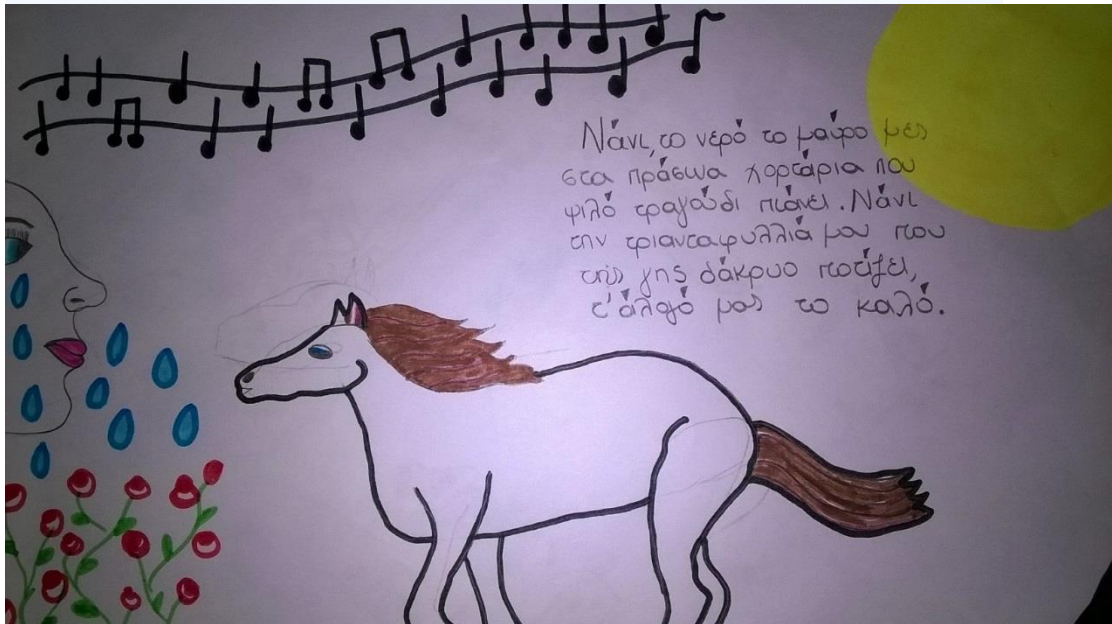 Νάνι, το νερό το μαύρο μες
στα πράσινα χορτάρια που
ψιλό τραγούδι πιάνει. Νάνι
την τριανταφυλλιά μου που
της γης δάκρυο ποτίζει,
τ' άλογό μας το καλό.